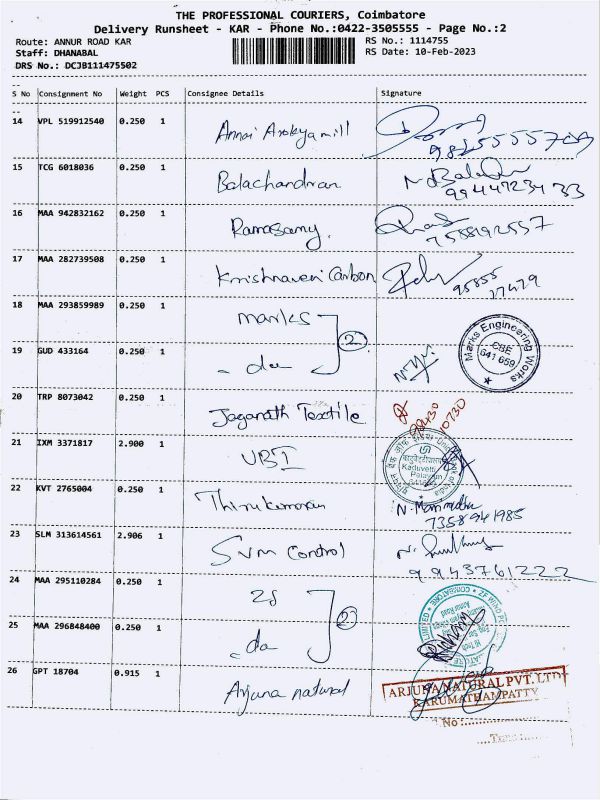 THE PROFESSIONAL COURIERS, Coimbatore
Delivery Runsheet - KAR - Phone No.:0422-3505555 - Page No.:2
Route: ANNUR ROAD KAR RS No.: 1114755
Staff: DHANABAL RS Date: 10-Feb-2023
DRS No.: DCJB111475502
S No Consignment No Weight PCS Consignee Details Signature
14 VPL 519912540 0.250 1 Annai Arokyamill
15 TCG 6018036 0.250 1 Balachandran 9944723433
16 MAA 942832162 0.250 1 Ramasamy. 7558192557
17 MAA 282739508 0.250 1 Krrishnaveni Carbon 95855
27429
18 MAA 293859989 0.250 1 marks
2
Marks Engineering Works
CBE
641 659
19 GUD 433164 0.250 1 - do
20 TRP 8073042 0.250 1 Jaganath Textile
21 IXM 3371817 2.900 1 UBI
Kaduvetti
Palayam
22 KVT 2765004 0.250 1 Thirukumaran
7358941985
23 SLM 313614561 2.906 1 SVM Control
9943761222
24 MAA 295110284 0.250 1 ZF
2
25 MAA 296848400 0.250 1 - do
26 GPT 18704 0.915 1 Arjuna natural
ARJUNA NATURAL PVT. LTD
KARUMATHAMPATTY
No :